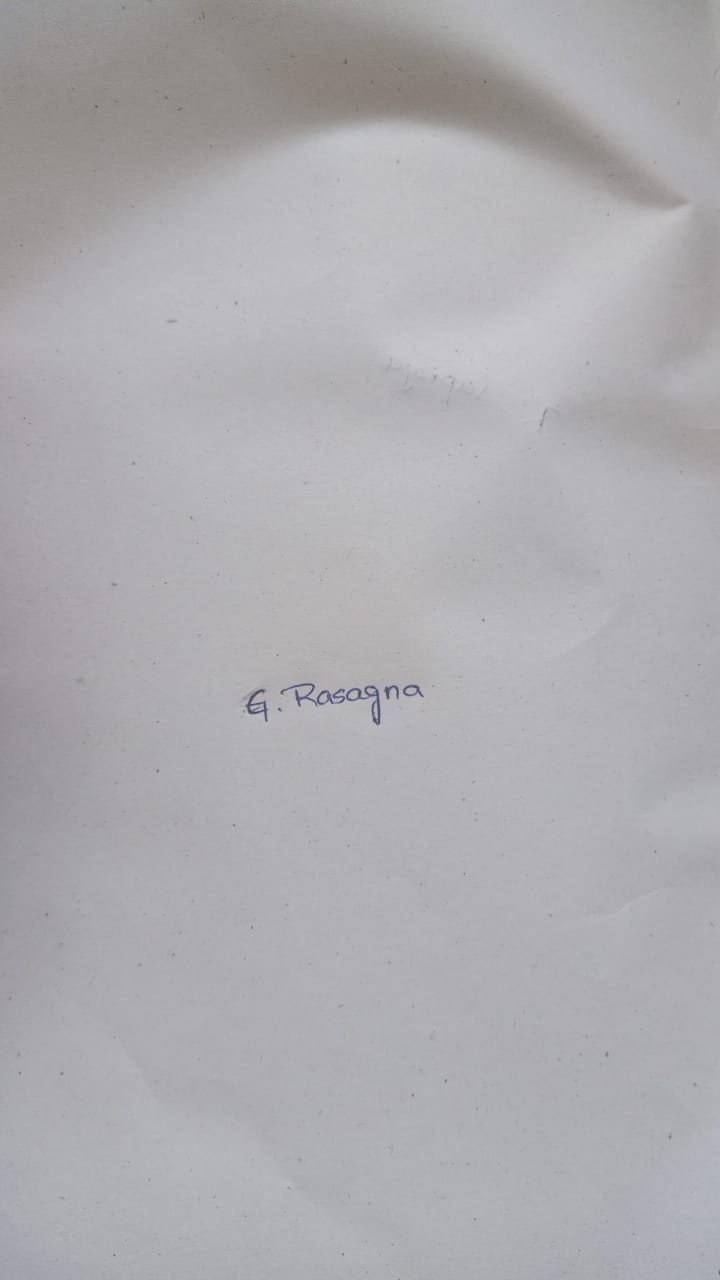 G. Rasagna